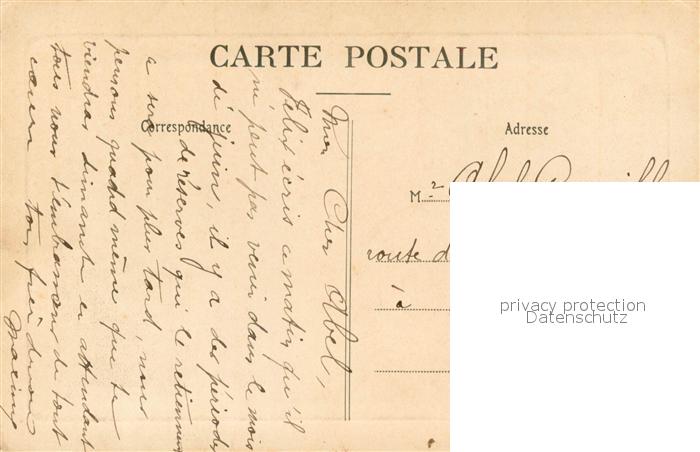 CARTE POSTALE
Correspondance
Adresse
Mon Cher Abel,
Félix écris ce matin qu'il
ne peut pas venir dans le mois
de juin, il y a des périodes
de réserves qui le retiennent
ce sera pour plus tard, nous
pensons quand même que tu
viendras dimanche en attendant
tous nous t'embrassons de tout
cœur ton
Maxime
M.r Abel
route d
à
privacy protection
Datenschutz